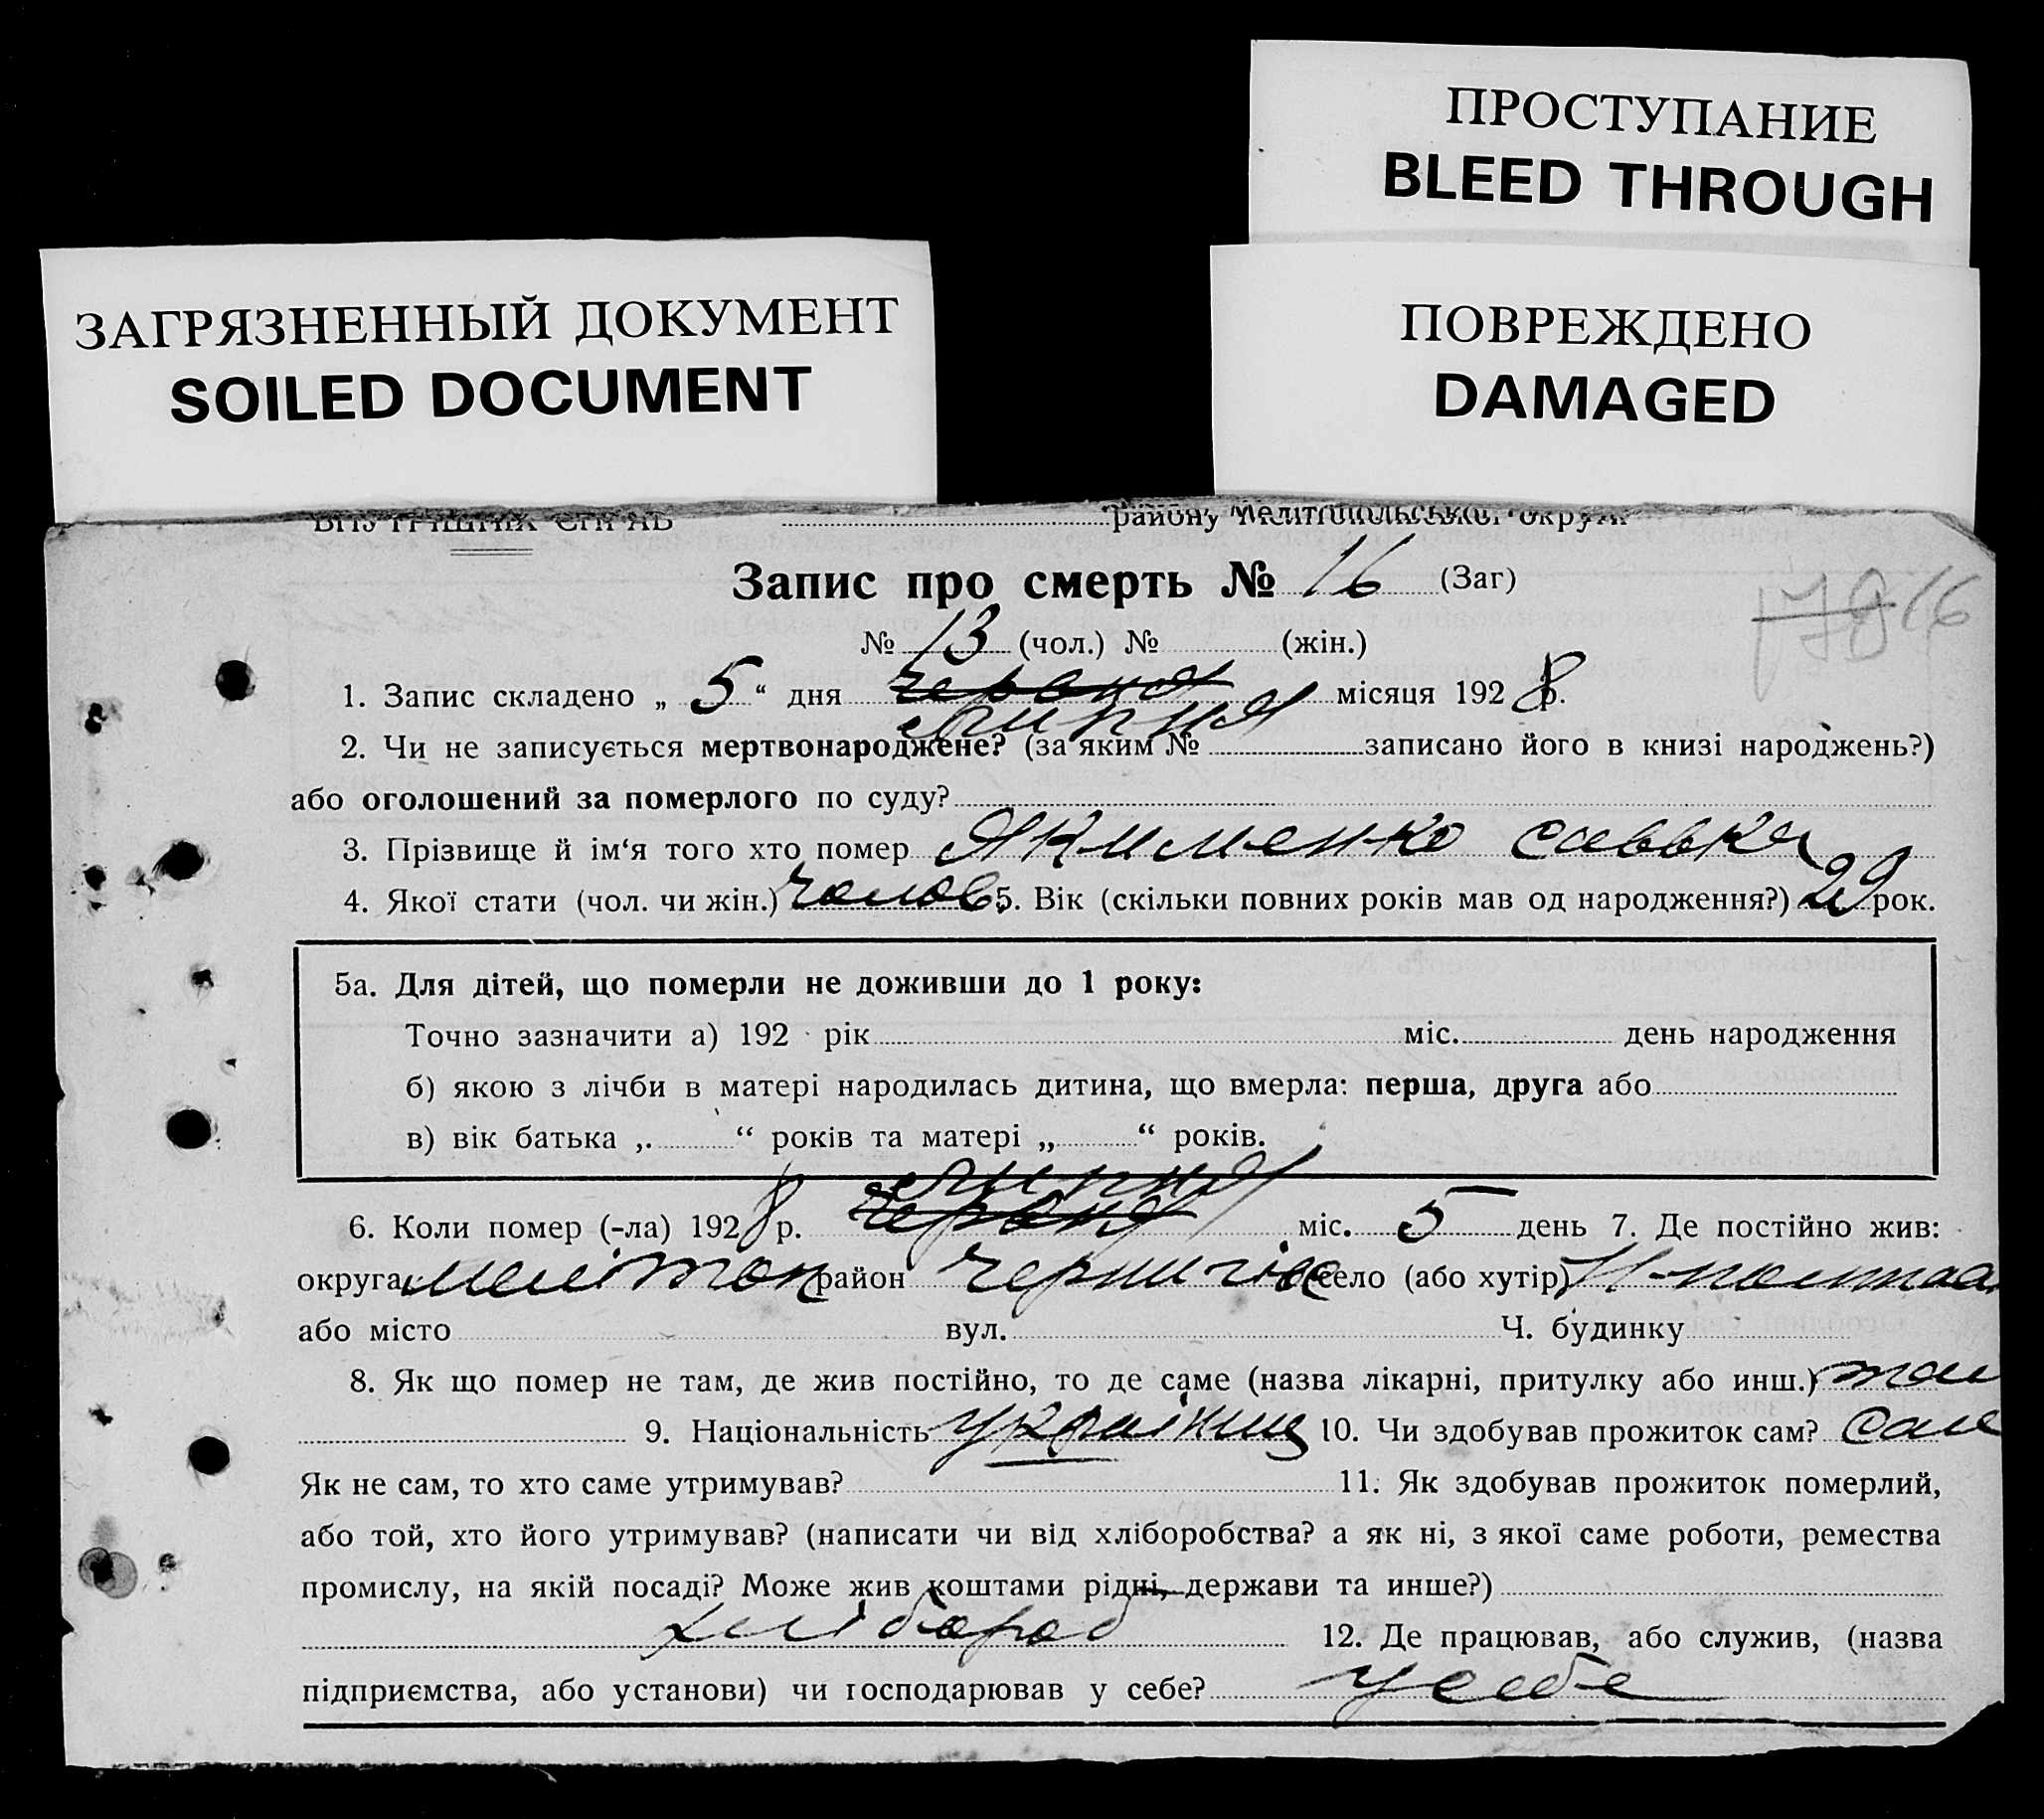 ПРОСТУПАНИЕ
BLEED THROUGH
ЗАГРЯЗНЕННЫЙ ДОКУМЕНТ
SOILED DOCUMENT
ПОВРЕЖДЕНО
DAMAGED
ВНУТРІШНІХ СПРАВ району Мелітопольської округи
Запис про смерть № 16 (Заг)
178 16
№ 13 (чол.) № (жін.)
1. Запис складено „ 5 “ дня червня місяця 1928 р.
липня
2. Чи не записується мертвонароджене? (за яким № записано його в книзі народжень?)
або оголошений за померлого по суду?
3. Прізвище й ім‘я того хто помер Якименко Саввка
4. Якої стати (чол. чи жін.) Чолов. 5. Вік (скільки повних років мав од народження?) 29 рок.
5а. Для дітей, що померли не доживши до 1 року:
Точно зазначити а) 192 рік міс. день народження
б) якою з лічби в матері народилась дитина, що вмерла: перша, друга або
в) вік батька „ “ років та матері „ “ років.
липня
6. Коли помер (-ла) 1928 р. червня міс. 5 день 7. Де постійно жив:
округа Мелітоп район Чернигів село (або хутір) Н-полтав
або місто вул. Ч. будинку
8. Як що помер не там, де жив постійно, то де саме (назва лікарні, притулку або инш.) там
9. Національність українец 10. Чи здобував прожиток сам? сам
Як не сам, то хто саме утримував? 11. Як здобував прожиток померлий,
або той, хто його утримував? (написати чи від хліборобства? а як ні, з якої саме роботи, ремества
промислу, на якій посаді? Може жив коштами рідні, держави та инше?)
хлібороб 12. Де працював, або служив, (назва
підприємства, або установи) чи господарював у себе? у себе